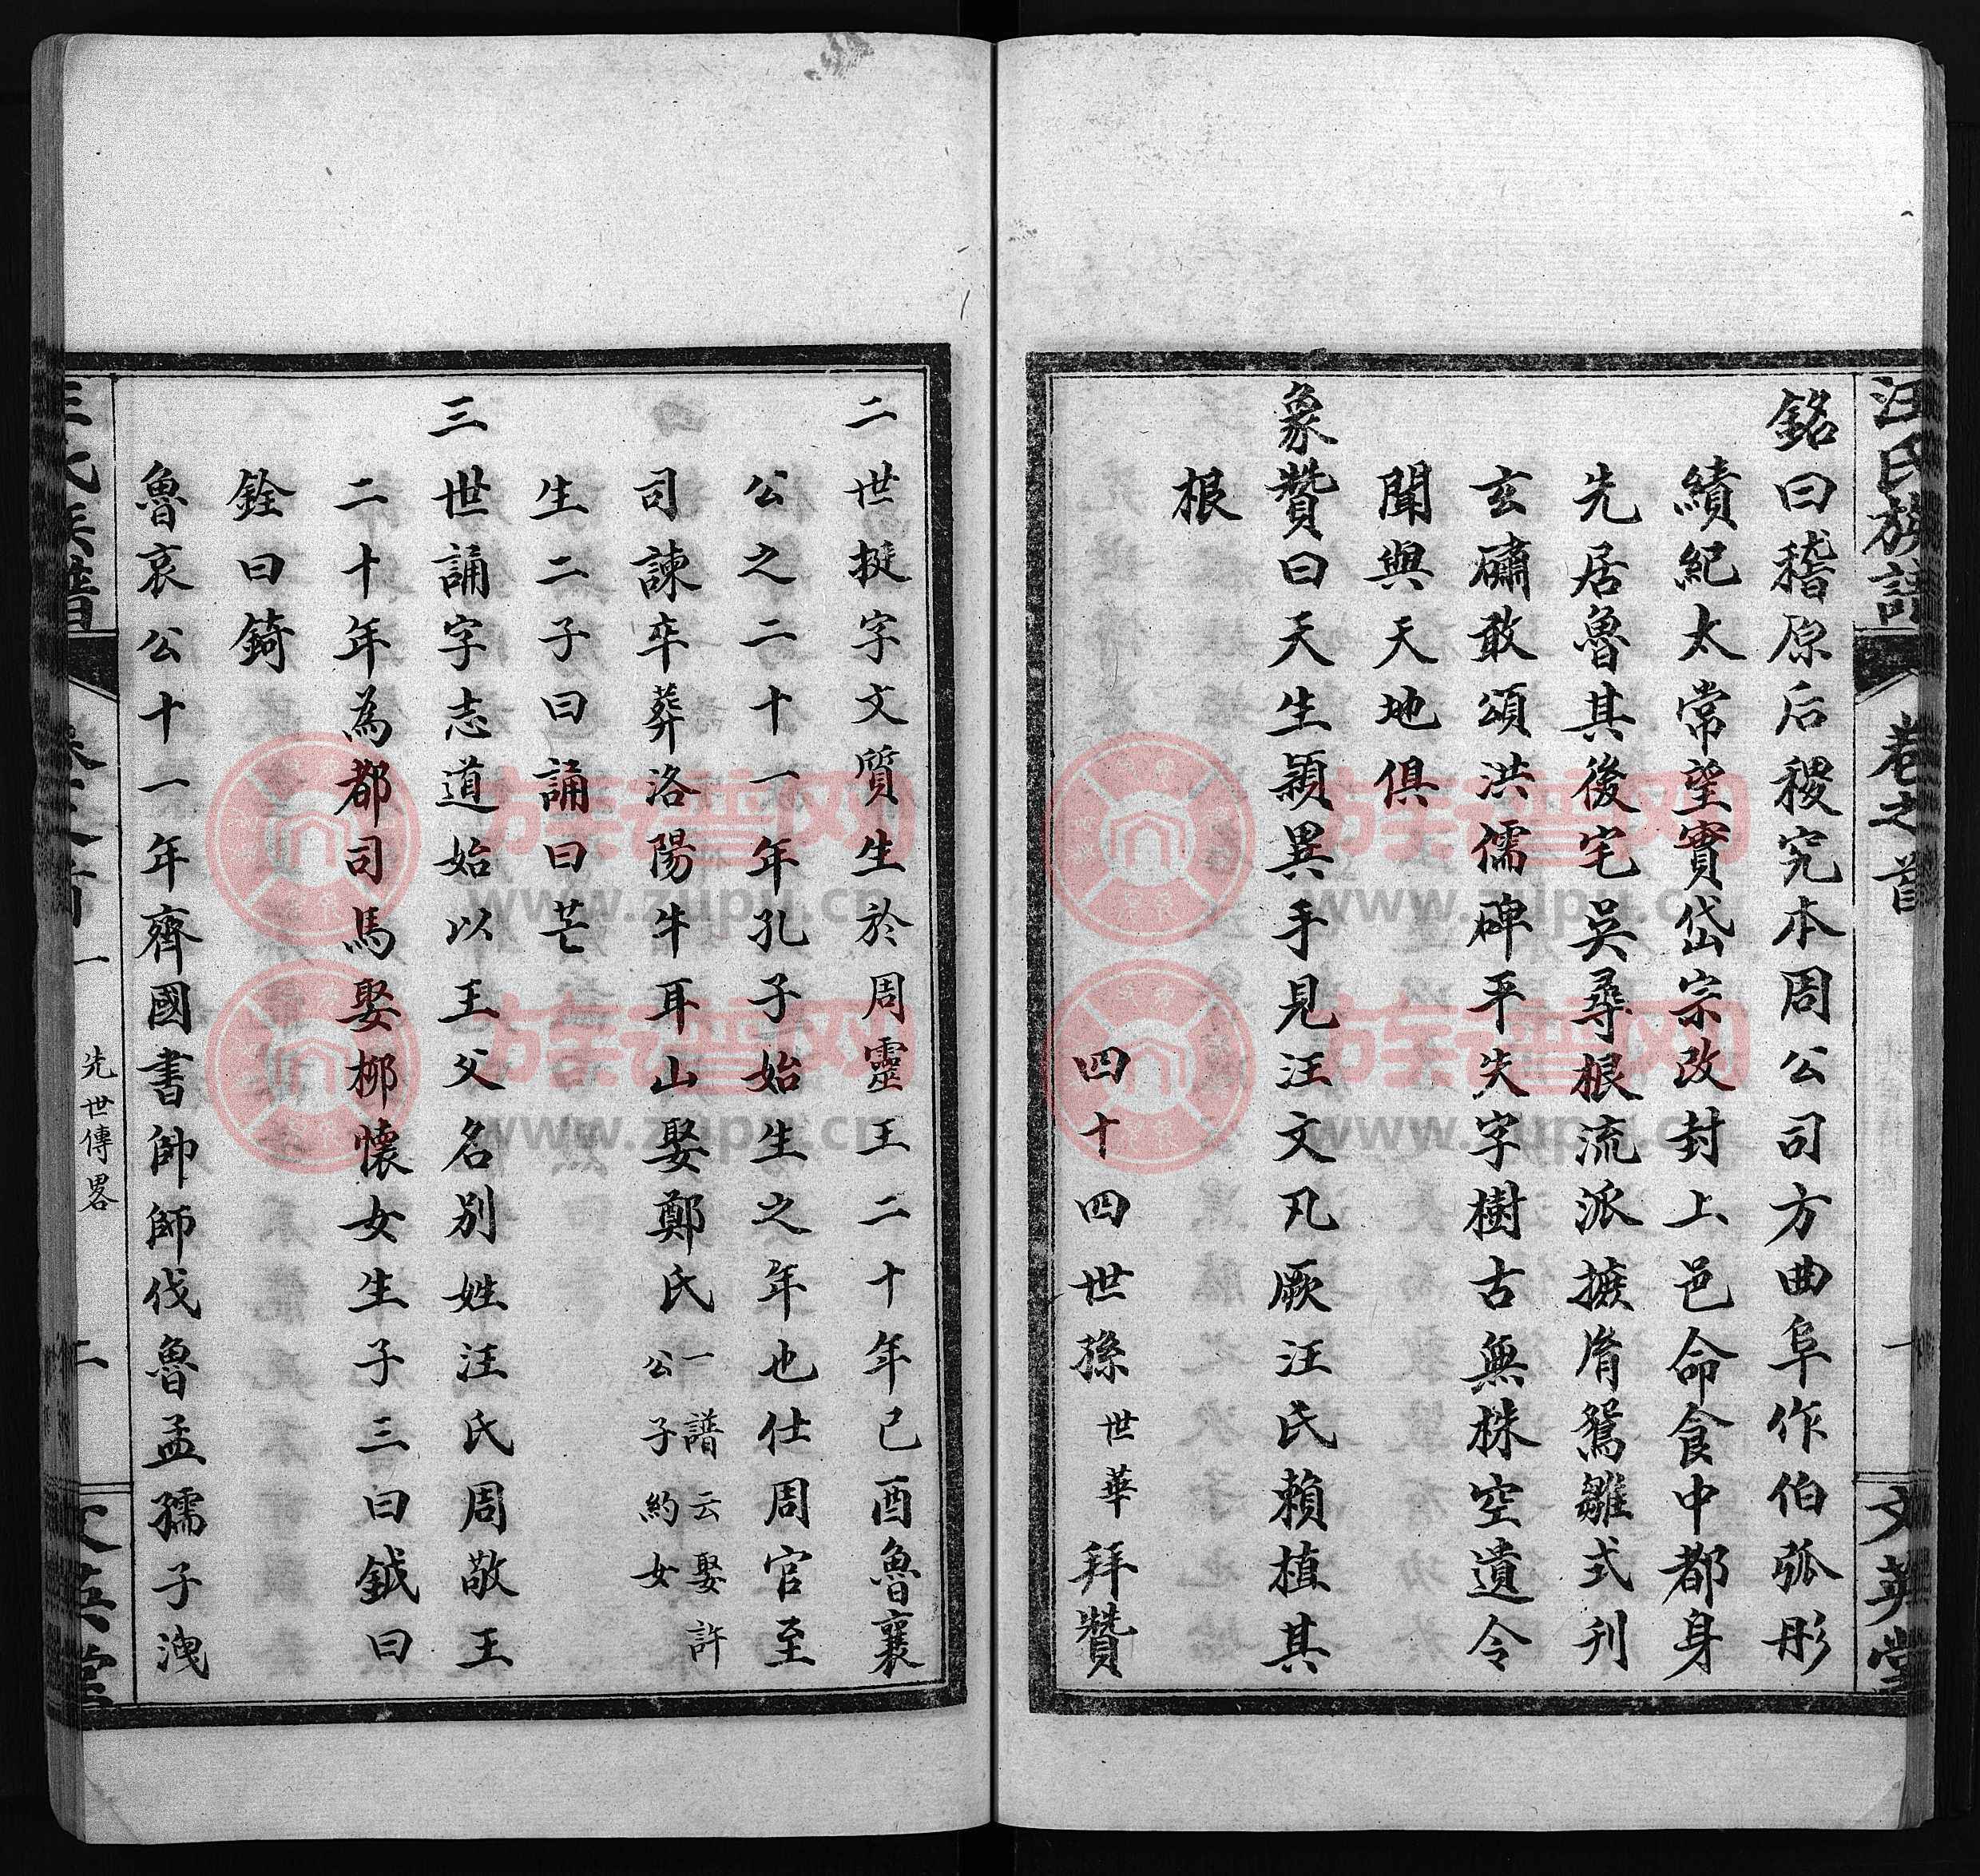 汪氏族譜
卷之首
一
文英堂
銘曰稽原后稷究本周公司方曲阜作伯弧彤
績紀太常望實岱宗改封上邑命食中都身
先居魯其後宅吳尋根流派摭胥鴛雛式刋
玄礴敢頌洪儒碑平失字樹古無株空遺令
聞與天地俱
象贊曰天生穎異手見汪文凡厥汪氏賴植其
根
四十四世孫世華拜贊
二世挺字文質生於周靈王二十年己酉魯襄
公之二十一年孔子始生之年也仕周官至
司諫卒葬洛陽牛耳山娶鄭氏一譜云娶許公子約女
生二子曰誦曰芒
三世誦字志道始以王父名別姓汪氏周敬王
二十年為都司馬娶柳懷女生子三曰鉞曰
銓曰錡
魯哀公十一年齊國書帥師伐魯孟孺子洩
汪氏族譜
卷之首一
先世傳畧
二
文英堂
族譜网
www.zupu.cn
族譜网
www.zupu.cn
族譜网
www.zupu.cn
族譜网
www.zupu.cn